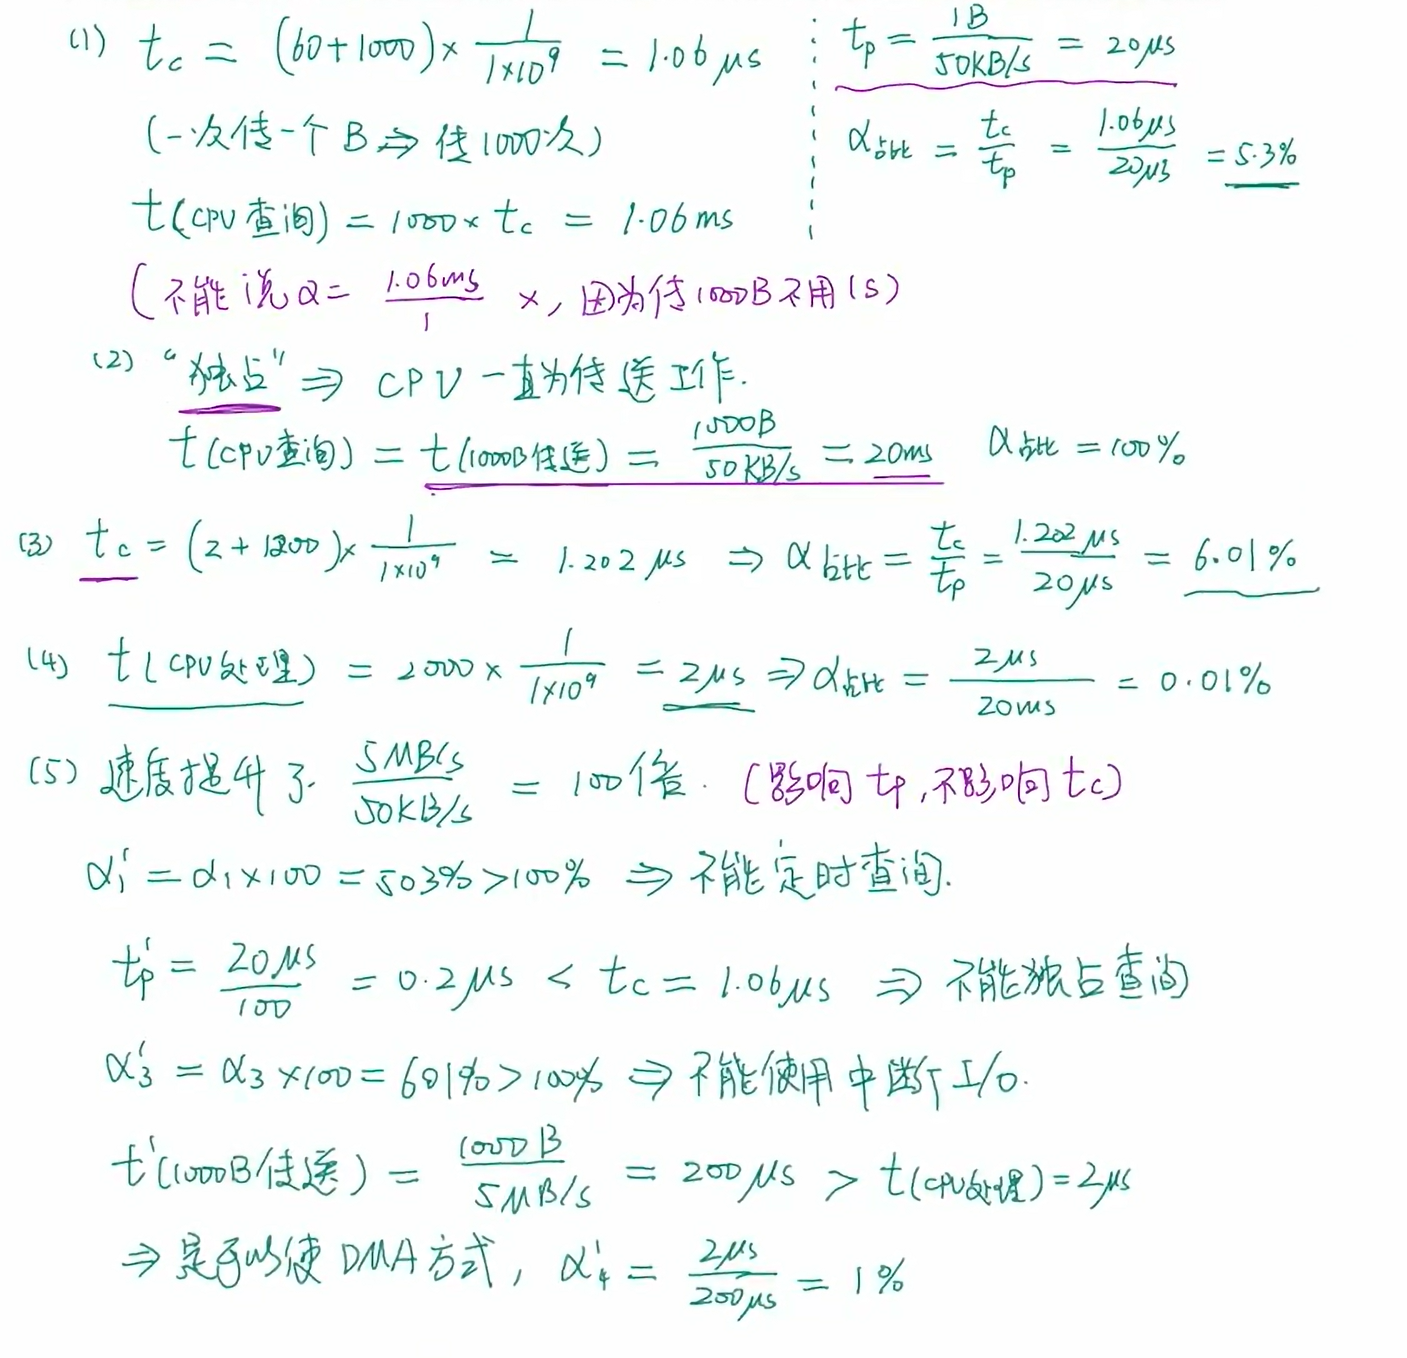 (1) tc = (60+1000)× 1/(1×10⁹) = 1.06μs
(一次传一个B⇒传1000次)
t(CPU查询) = 1000×tc = 1.06ms
tp = 1B/(50KB/s) = 20μs
α占比 = tc/tp = 1.06μs/20μs = 5.3%
(不能说α = 1.06ms/1 ×, 因为传1000B不用1s)
(2) "独占" ⇒ CPU一直为传送工作.
t(CPU查询) = t(1000B传送) = 1000B/(50KB/s) = 20ms α占比 = 100%
(3) tc = (2+1200)× 1/(1×10⁹) = 1.202μs ⇒ α占比 = tc/tp = 1.202μs/20μs = 6.01%
(4) t(CPU处理) = 2000× 1/(1×10⁹) = 2μs ⇒ α占比 = 2μs/20ms = 0.01%
(5) 速度提升了. 5MB/s/50KB/s = 100倍. (影响tp,不影响tc)
α₁' = α₁×100 = 503%>100% ⇒ 不能定时查询.
tp' = 20μs/100 = 0.2μs < tc = 1.06μs ⇒ 不能独占查询
α₃' = α₃×100 = 601%>100% ⇒ 不能使用中断I/O.
t'(1000B传送) = 1000B/(5MB/s) = 200μs > t(CPU处理) = 2μs
⇒ 是可以使DMA方式, α₄' = 2μs/200μs = 1%